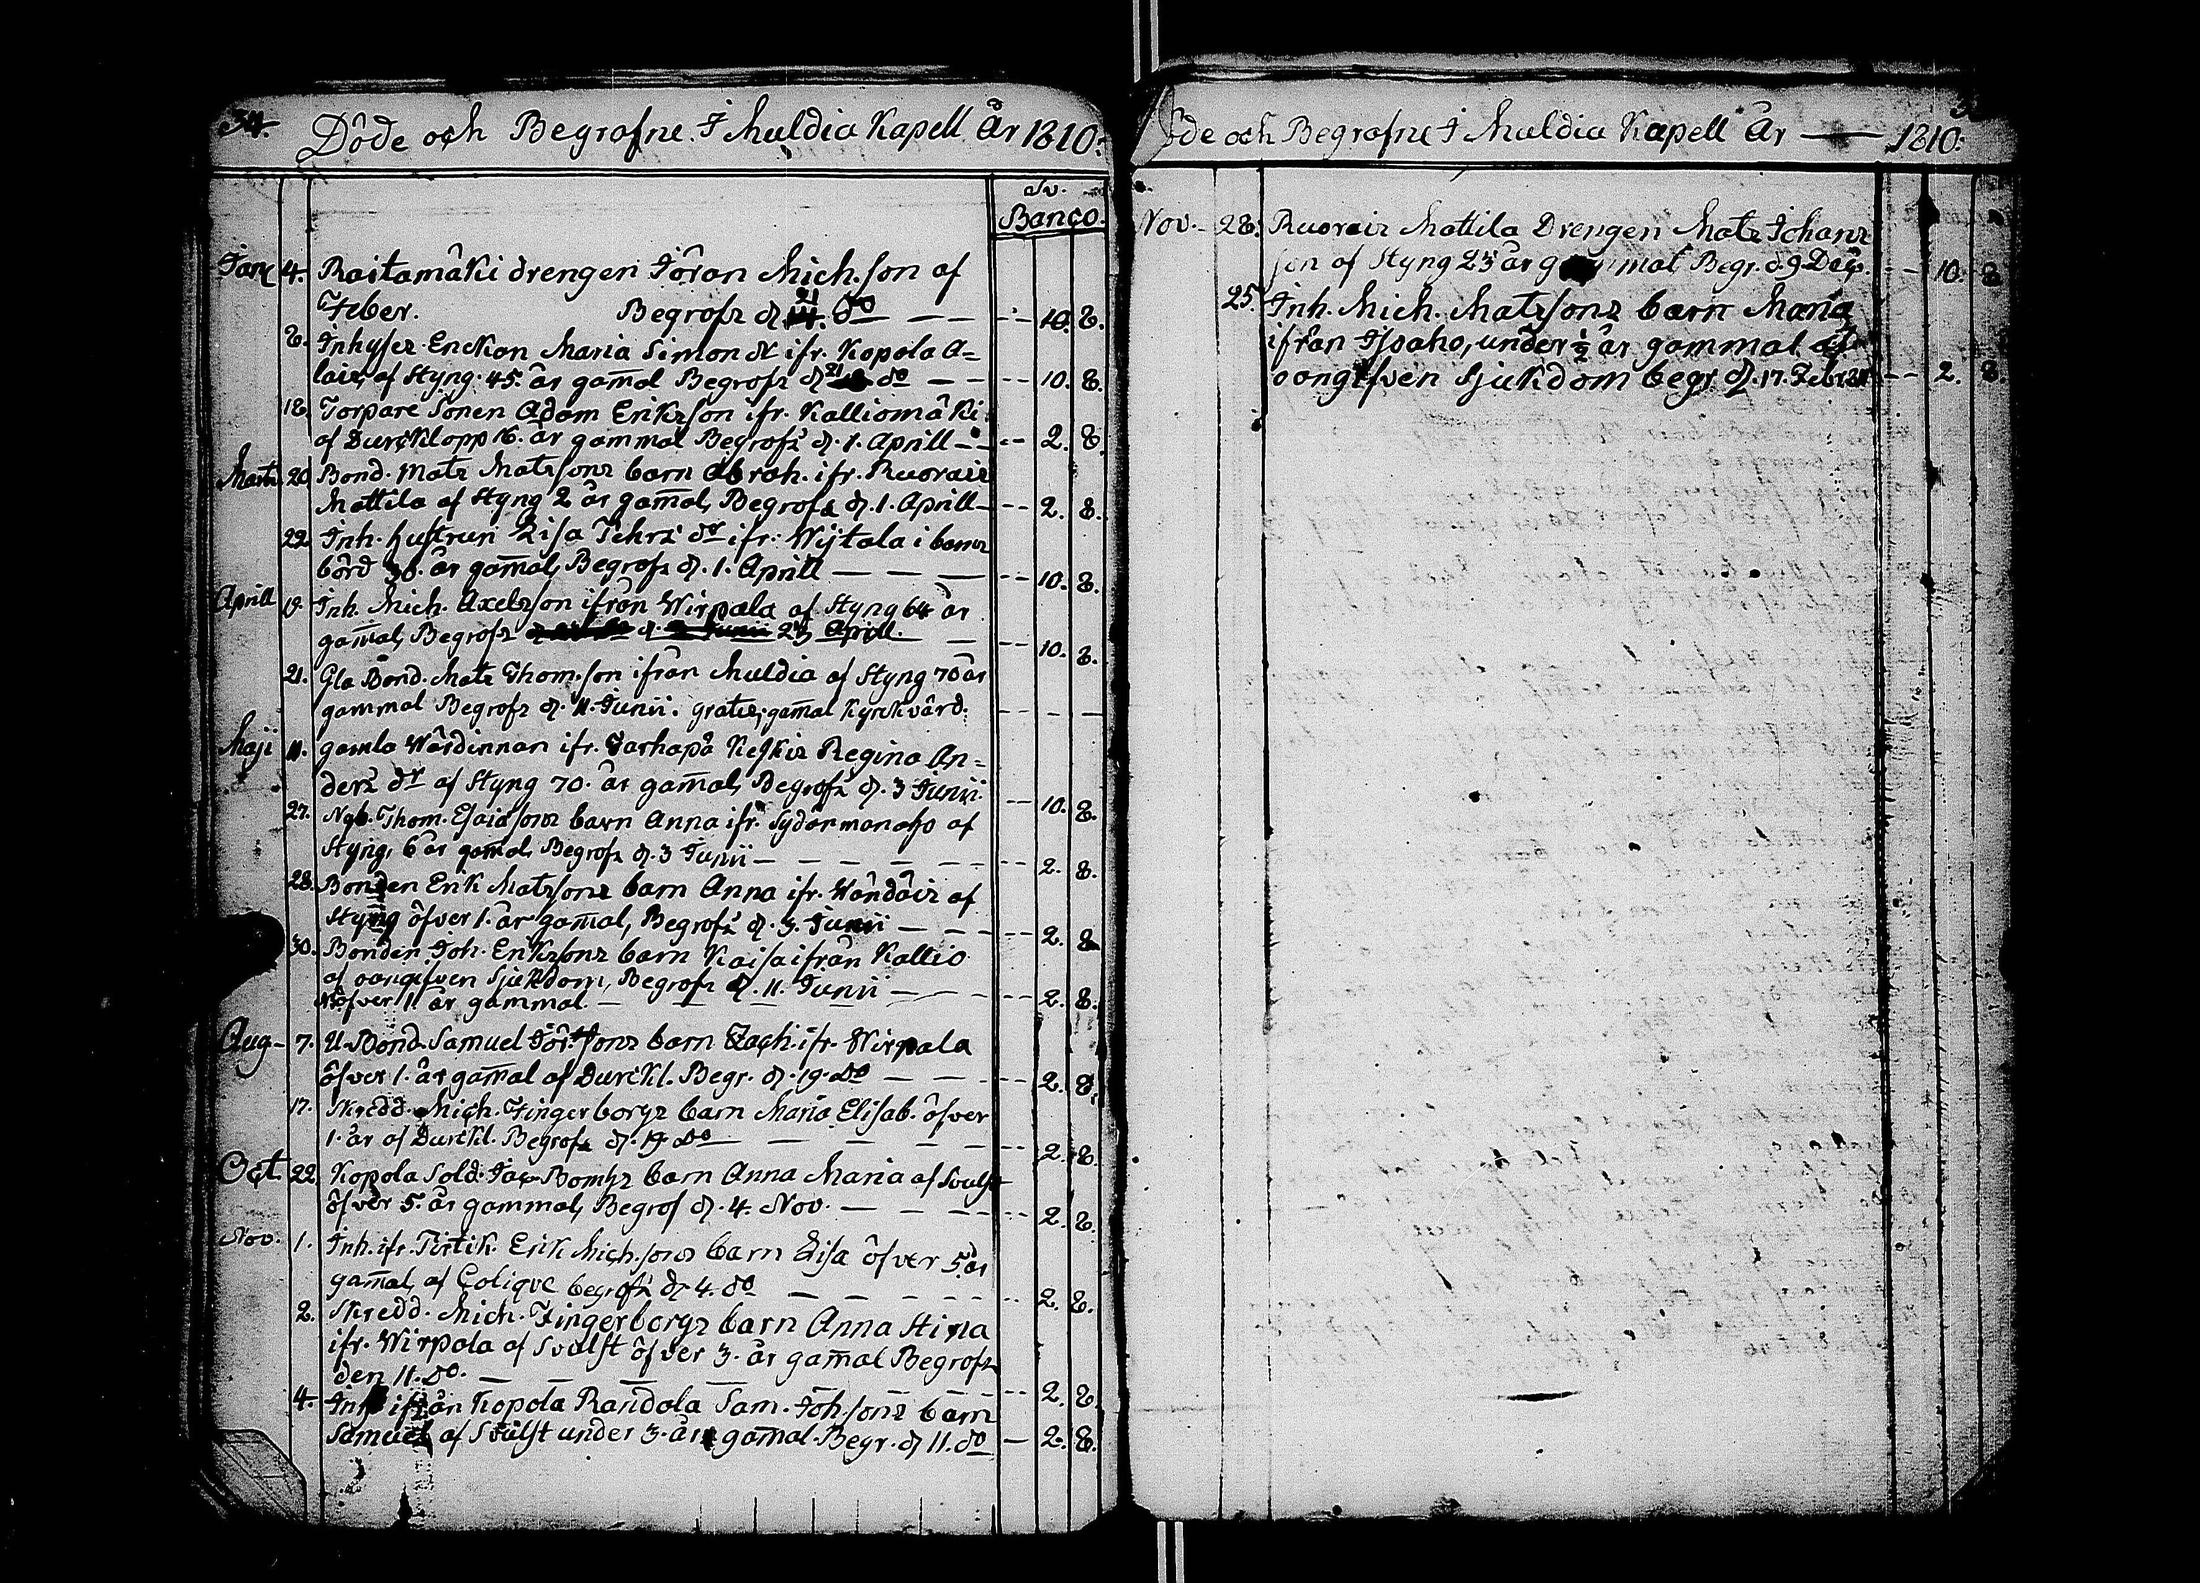 34.
Döde och Begrafne. I Muldia Kapell År 1810:
Sv.
Banco.
Janr 4. Raitamäki drengen Jöran Mich.son af
Feber. Begrofs d. 21 do — — 10. 8.
8. Inhyses Enckan Maria Simons dr ifr. Kopola A=
lais, af Styng. 45. år gamal Begrofs d. 21 do — — 10. 8.
18. Torpare Sonen Adam Erikzson ifr. Kalliomäki.
af Durcklopp 16. år gammal Begrofs d. 1. Aprill — 2. 8.
Marti 20. Bond. Mats Matssons barn Abrah. ifr. Ruorais
Mattila af Styng 2 år gamal, Begrofs d. 1. Aprill — 2. 8.
22. Inh. hustrun Lisa Tehrs dr ifr. Wijtala i barns
börd 30. år gamal, Begrofs d. 1. Aprill — — — 10. 8.
Aprill 19. Inh. Mich. Axelsson ifrån Wirpala af Styng 64 år
gamal, Begrofs d. 23 Aprill. — 10. 8.
21. Gla Bond. Mats Thom.son ifrån Muldia af Styng 70 år
gammal Begrofs d. 11. Junii. gratis, gamal Kyrckvärd. — — —
Maji 11. gamla Wärdinnan ifr. Tarhapä Keskis Regina An=
ders dr af Styng 70. år gamal, Begrofs d. 3 Junii. — 10. 8.
27. Nyb. Thom. Esaiasons barn Anna ifr. Sydänmanaho af
Styng, 6 år gamal, Begrofs d. 3 Junii — — — 2. 8.
28. Bonden Erik Matssons barn Anna ifr. Wändäis af
Styng öfver 1. år gamal, Begrofs d. 3. Junii — — 2. 8.
30. Bonden Joh. Erikzsons barn Kaisa ifrån Kallio
af oangifven Sjukdom, Begrofs d. 11. Junii — — 2. 8.
öfver 1. år gammal —
Aug. 7. U. Bond. Samuel Jör.sons barn Zach. ifr. Wirpala
öfver 1. år gamal af Durckl. Begr. d. 19. do — — 2. 8.
17. Skredd. Mich. Fingerborgs barn Maria Elisab. öfver
1. år af Durckl. Begrofs d. 19. do — — — 2. 8.
Oct. 22 Kopola Sold. Jac. Bombs barn Anna Maria af Svulst
öfver 5. år gammal, Begrof d. 4. Nov. — — 2. 8.
Nov. 1. Inh. ifr. Pirtik. Erik Mich.sons barn Lisa öfver 5. år
gamal, af Colique begrofs d. 4. do — — — 2. 8.
2. Skredd. Mich. Fingerborgs barn Anna Stina
ifr. Wirpala af Svulst öfver 3. år gamal Begrofs
den 11. do. — — — 2. 8.
4. Inh. ifrån Kopola Randala Sam. Joh.sons barn
Samuel af Svulst under 3. år gamal. Begr. d. 11. do — 2. 8.
öde och Begrafne I Muldia Kapell År — 1810.
Nov. 28. Ruorais Mattila Drengen Mats Johans
son af Styng 23 år gammal Begr. d. 9 Dec. — 10. 8
25. Inh. Mich. Matssons barn Maria
ifrån Isoaho, under ½ år gammal af
oangifven Sjukdom begr. d. 17. Febr. — 2. 8.